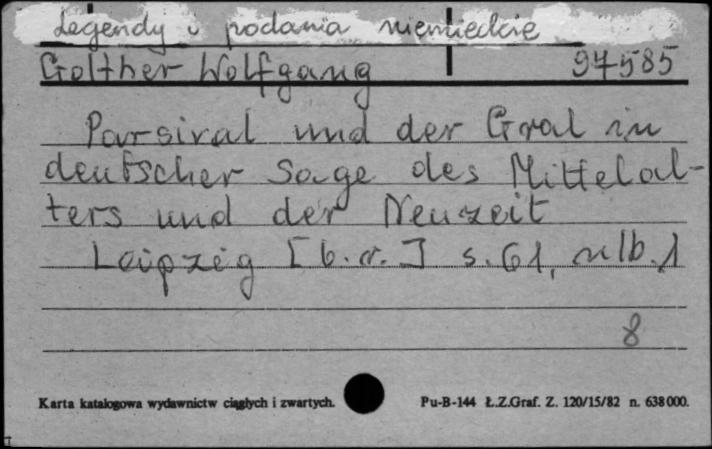 Legendy i podania niemieckie
Golther Wolfgang 97585
Parsival und der Gral in
deutscher Sage des Mittelal-
ters und der Neuzeit
Leipzig [b.r.] s. 61, nlb. 1
8
Karta katalogowa wydawnictw ciągłych i zwartych. Pu-B-144 Ł.Z.Graf. Z. 120/15/82 n. 638000.